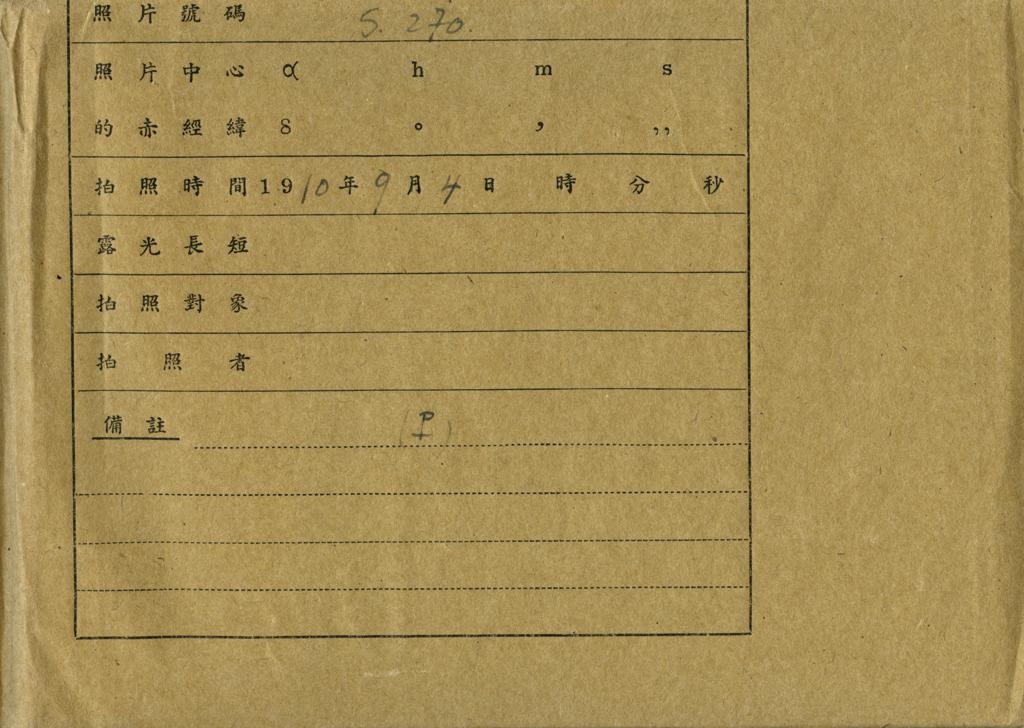 照片號碼 S. 270.
照片中心 α h m s
的赤經緯 δ ° ′ ″
拍照時間 1910年9月4日 時 分 秒
露光長短
拍照對象
拍照者
備註